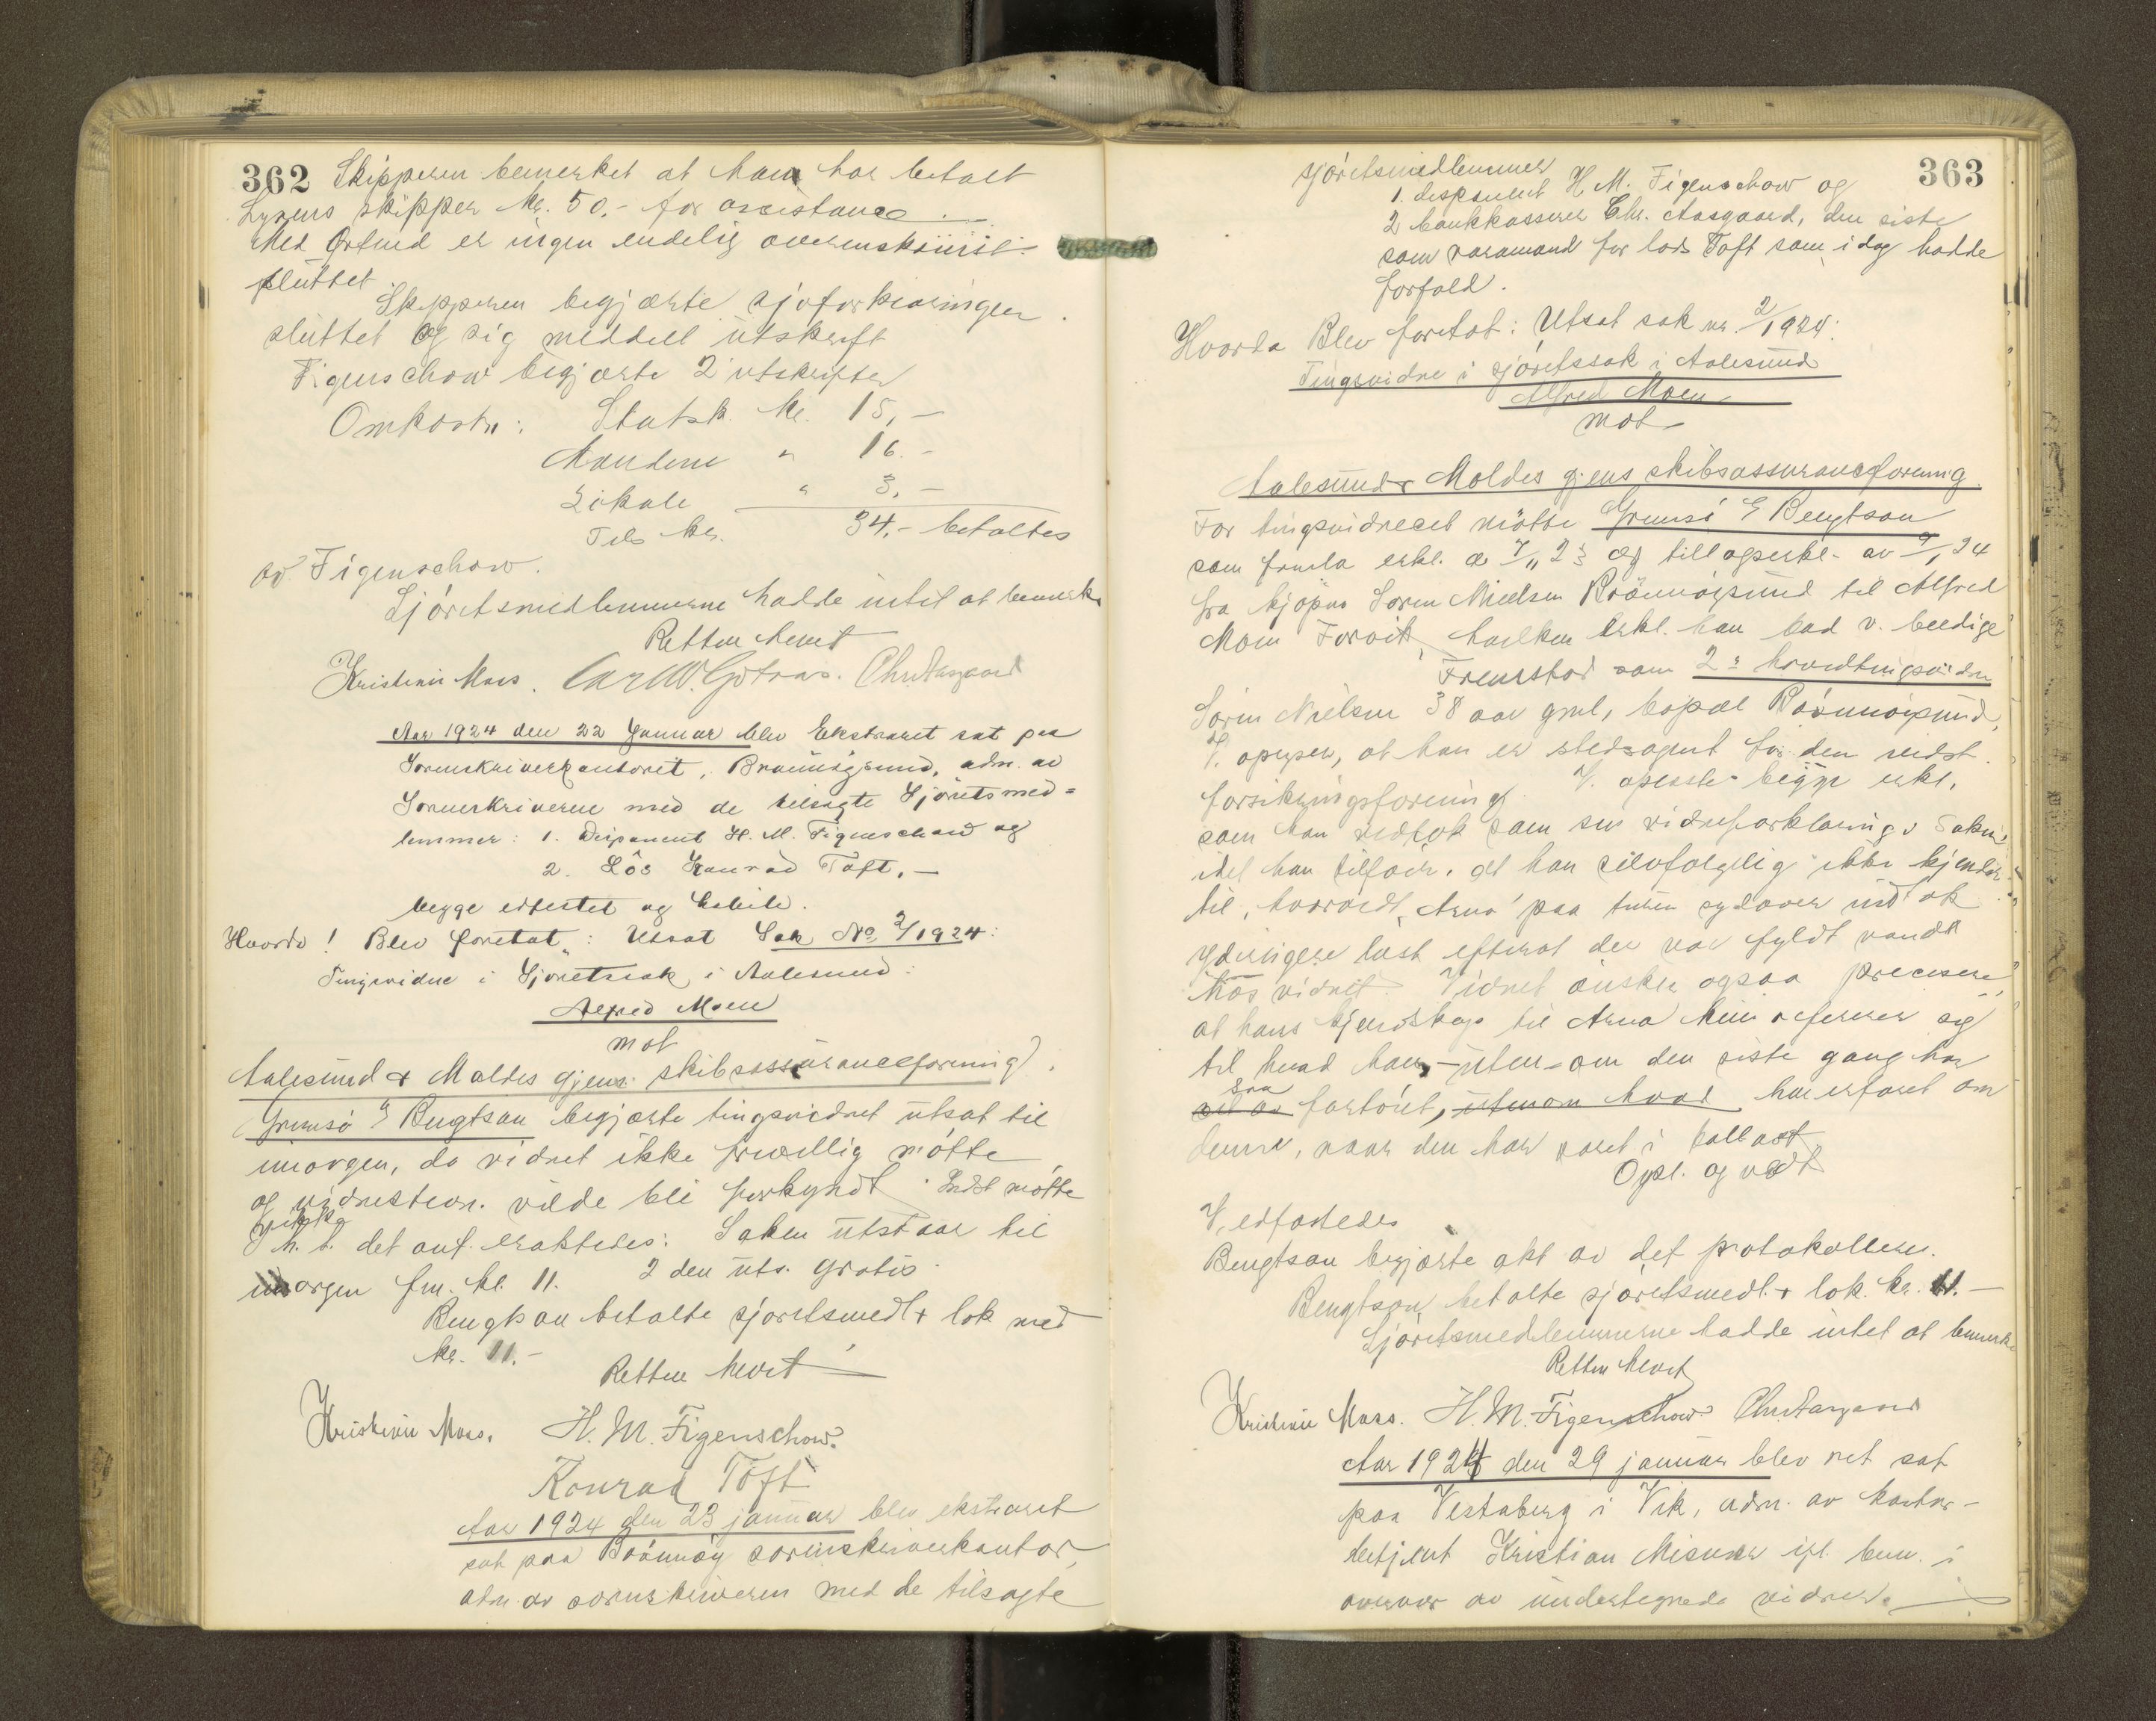 362 Skipperen bemerket at han har betalt
Lysens skipper kr. 50,- for assistance.
Med Ørtned er ingen endelig overenskomst
sluttet
Skipperen begjærte sjøforklaringen
sluttet og sig meddelt utskrift
Figenschow begjærte 2 utskrifter
Omkostn: Statsk. kr. 15,-
Mændene " 16.-
Lokale " 3,-
Tils kr. 34,- betaltes
av Figenschow.
Sjøretsmedlemmerne hadde intet at bemerke
Retten hevet
Kristinn Moss. Carl W. Chr Aasgaard
Aar 1924 den 22 Januar blev Ekstraret sat paa
Sorenskriverkontoret, Brønnøysund, adm. av
Sorenskriveren med de tilsagte Sjøretsmed=
lemmer: 1. Disponent H. M. Figenschow og
2. Los Konrad Toft.-
begge edfestet og habile.
Hvorda! Blev foretat: Utsat Sak No 2/1924:
Tingsvidne i Sjøretssak i Aalesund:
Alfred Moen
mot
Aalesund & Moldes gjens: skibsassuranceforening.
Grimsø & Bengtson begjærte tingsvidnet utsat til
imorgen, da vidnet ikke frivillig møtte
og vidnestevn. vilde bli forkyndt. Indst møtte
ikke
I h. t. det anf. eraktedes: Saken utstaar til
imorgen frm. kl. 11. 2 den uts. gratis.
Bengtson betalte sjøretsmedl & lok med
kr. 11.-
Retten hevet
Kristinn Moss. H. M. Figenschow.
Konrad Toft
Aar 1924 den 23 januar blev ekstraret
sat paa Brønnøy sorenskriverkontor,
adm. av sorenskriveren med de tilsagte
363
sjøretsmedlemmer
1. disponent H M. Figenschow og
2 bankkasserer Chr. Aasgaard, den siste
som varamand for los Toft som idag hadde
forfald.
Hvorda Blev foretat: Utsat sak nr. 2/1924:
Tingsvidne i sjøretssak i Aalesund
Alfred Moen
mot
Aalesund & Moldes gjens skibsassuranceforening.
For tingsvidnet møtte Grimsø & Bengtson
som fremla erkl. av 7/11 23 og tillægserkl. av 9/1 24
fra kjøpm Søren Nielsen Brønnøysund til Alfred
Moen Forvik, hvilken erkl. han bad v. beedige
Fremstod som 2: hovedtingsvidne
Søren Nielsen 38 aar gml, bopæl Brønnøysund,
V. opgiver, at han er stedsagent for den indst.
forsikringsforening. V. oplæste begge erkl.
som han vedtok som sin vidneforklaring i Saken,
idet han tilføier, at han selvfølgelig ikke kjender
til, hvorvidt, Arna paa turen sydover indtok
yderligere last efterat der var fyldt vand
hos vidnet. Vidnet ønsker ogsaa precisere,
at hans kjendskap til Arna kun referer sig
til hvad han -uten-om den siste gang har
saa
fartøiet, utenom hvad har erfaret om
denne, naar den har været i ballast.
Opl. og vedt
V. edfæstedes
Bengtson begjærte akt av det protokollerte.
Bengtson betalte sjøretsmedl. & lok. kr. 11.-
Sjøretsmedlemmerne hadde intet at bemerke
Retten hevet
Kristinn Moss. H. M. Figenschow Chr Aasgaard
Aar 1924 den 29 januar blev ret sat
paa Vestaberg i Vik, adm. av kontor-
betjent Kristian Misvær ifl. bem. i
overvær av undertegnede vidner.